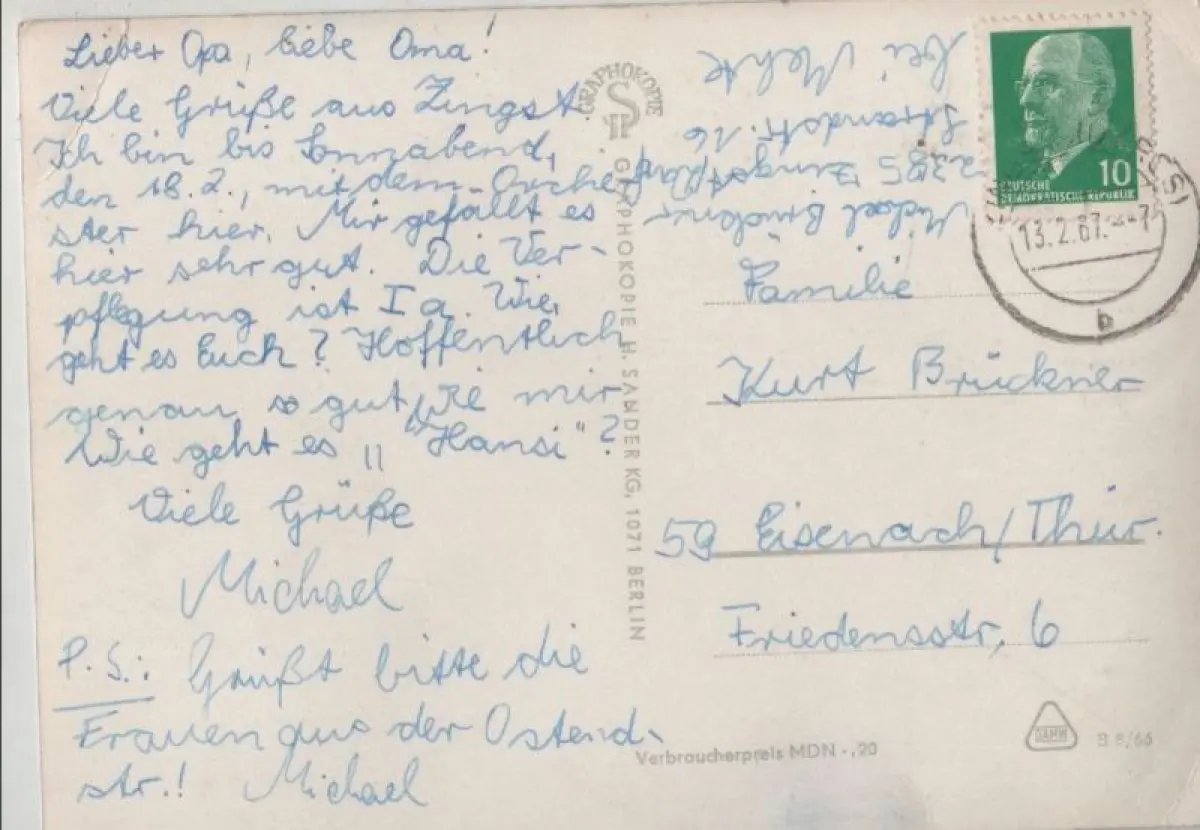 Lieber Opa, liebe Oma!
Viele Grüße aus Zingst.
Ich bin bis Sonnabend,
den 18.2., mit dem Orche-
ster hier. Mir gefällt es
hier sehr gut. Die Ver-
pflegung ist Ia. Wie
geht es Euch? Hoffentlich
genau so gut wie mir
Wie geht es „Hansi“?
Viele Grüße
Michael
P.S.: Grüßt bitte die
Frauen aus der Ostend-
str.! Michael
GRAPHOKOPIE
GRAPHOKOPIE H. SANDER KG, 1071 BERLIN
Michael Brückner
2385 Zingst/Darß
Strandstr. 16
bei
10
DEUTSCHE
DEMOKRATISCHE REPUBLIK
13.2.67.-7
b
Familie
Kurt Brückner
59 Eisenach/Thür.
Friedensstr. 6
Verbraucherpreis MDN -,20
B 8/66